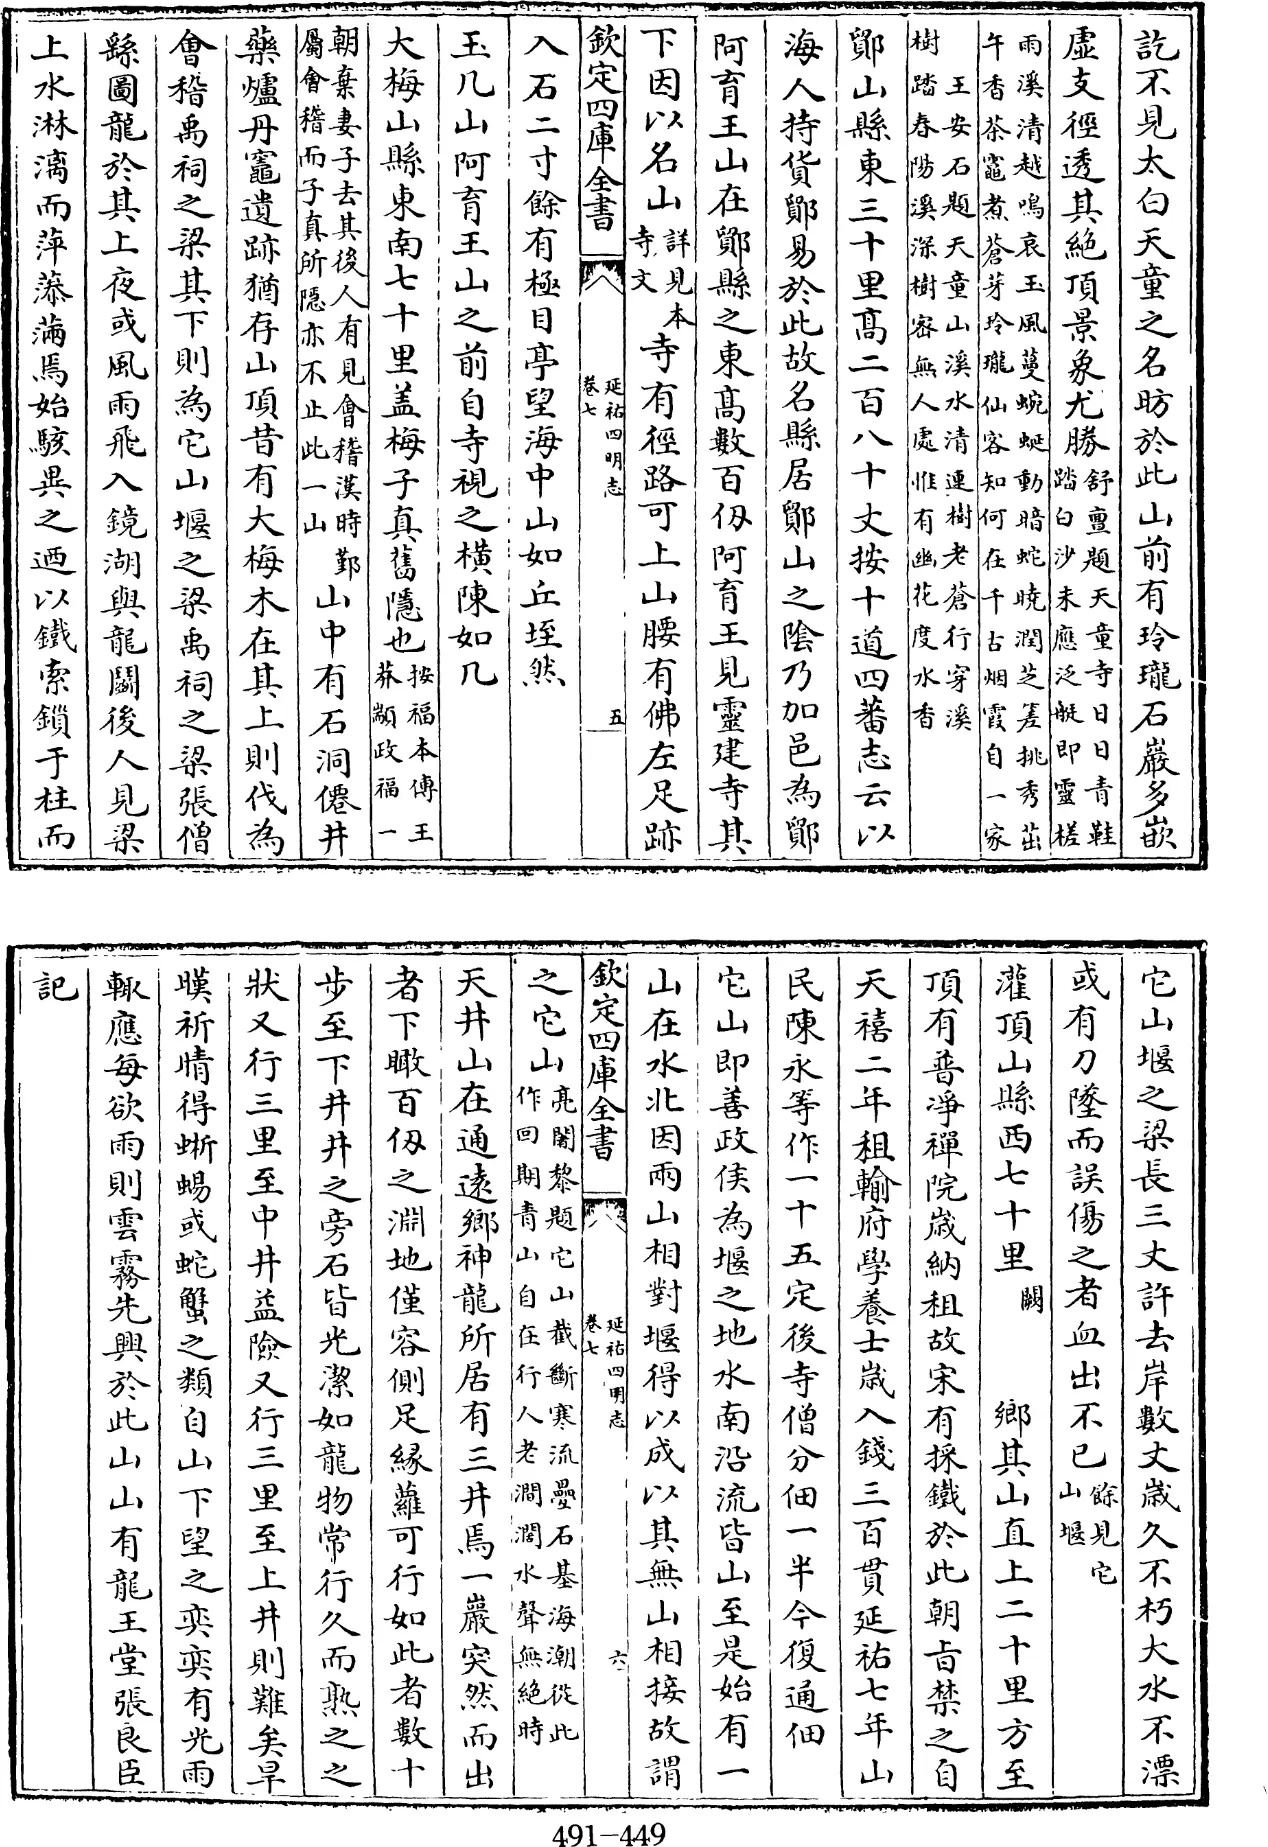 訖不見太白天童之名昉於此山前有玲瓏石巖多嵌
虛支徑透其絶頂景象尤勝舒亶題天童寺日日青鞋踏白沙未應泛艇即靈槎
雨溪清越鳴哀玉風蔓蜿蜒動暗蛇曉潤芝差挑秀茁午香茶竈煮蒼芽玲瓏仙客知何在千古烟霞自一家
王安石題天童山溪水清連樹老蒼行穿溪樹踏春陽溪深樹密無人處惟有幽花度水香
鄮山縣東三十里髙二百八十丈按十道四蕃志云以
海人持貨鄮易於此故名縣居鄮山之陰乃加邑為鄮
阿育王山在鄮縣之東髙數百仭阿育王見靈建寺其
下因以名山詳見本寺文寺有徑路可上山腰有佛左足跡
欽定四庫全書
延祐四明志
卷七
五
入石二寸餘有極目亭望海中山如丘垤然
玉几山阿育王山之前自寺視之橫陳如几
大梅山縣東南七十里盖梅子真舊隱也按福本傳王莽顓政福一
朝棄妻子去其後人有見㑹稽漢時鄞屬㑹稽而子真所隱亦不止此一山山中有石洞僊井
藥爐丹竈遺跡猶存山頂昔有大梅木在其上則伐為
㑹稽禹祠之梁其下則為它山堰之梁禹祠之梁張僧
繇圖龍於其上夜或風雨飛入鏡湖與龍鬭後人見梁
上水淋漓而萍藻滿焉始駭異之迺以鐵索鎖于柱而
它山堰之梁長三丈許去岸數丈歲久不朽大水不漂
或有刀墜而誤傷之者血出不已餘見它山堰
灌頂山縣西七十里闕鄉其山直上二十里方至
頂有普凈禪院歲納租故宋有採鐵於此朝㫖禁之自
天禧二年租輸府學養士歲入錢三百貫延祐七年山
民陳永等作一十五定後寺僧分佃一半今復通佃
它山即善政侯為堰之地水南沿流皆山至是始有一
山在水北因兩山相對堰得以成以其無山相接故謂
欽定四庫全書
延祐四明志
卷七
六
之它山亮闍黎題它山截斷寒流壘石基海潮從此作回期青山自在行人老澗濶水聲無絶時
天井山在通逺鄉神龍所居有三井焉一巖突然而出
者下瞰百仭之淵地僅容側足緣蘿可行如此者數十
步至下井井之旁石皆光潔如龍物常行久而熟之之
狀又行三里至中井益險又行三里至上井則難矣旱
暵祈晴得蜥蜴或蛇蟹之類自山下望之奕奕有光雨
輙應每欲雨則雲霧先興於此山山有龍王堂張良臣
記
491-449